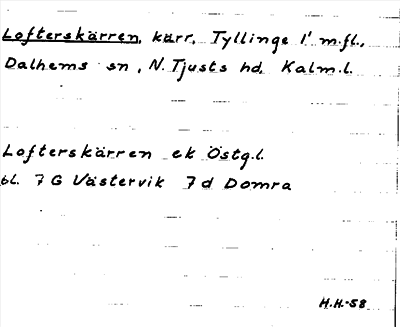 Lofterskärren, kärr, Tyllinge 1' m.fl.,
Dalhems sn, N. Tjusts hd, Kalm.l.
Lofterskärren ek Östg.l.
bl. 7 G Västervik 7 d Domra
H.H.-58